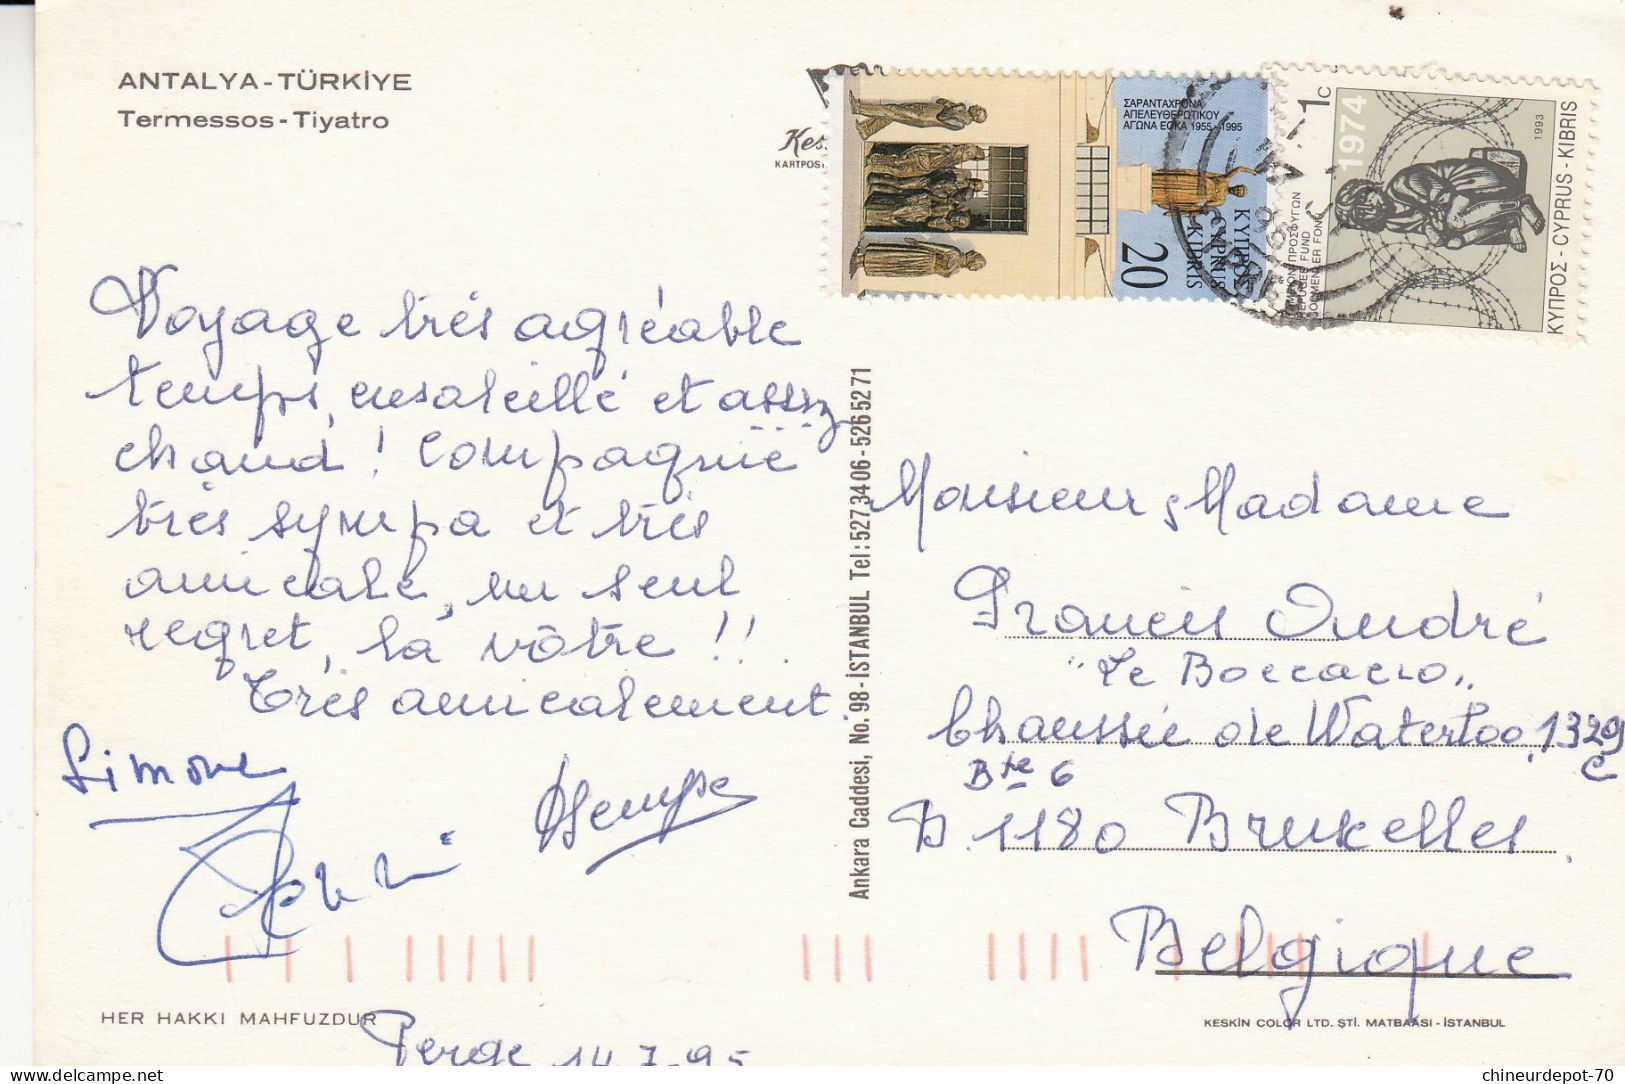 ANTALYA - TÜRKİYE
Termessos - Tiyatro
Kes
KARTPOST
ΣΑΡΑΝΤΑΧΡΟΝΑ
ΑΠΕΛΕΥΘΕΡΩΤΙΚΟΥ
ΑΓΩΝΑ ΕΟΚΑ 1955-1995
ΚΥΠΡΟΣ
CYPRUS
KIBRIS
20
1c
1974
1993
ΚΥΠΡΟΣ - CYPRUS - KIBRIS
REFUGEE FUND
GÖÇMENLER FONU
Voyage très agréable
temps, ensoleillé et assez
chaud ! Compagnie
très sympa et très
amicale, un seul
regret, la vôtre !!
Très amicalement
Simone
Ankara Caddesi, No. 98 - İSTANBUL Tel: 527 34 06 - 526 52 71
Monsieur, Madame
Francis André
"Le Boccacio"
Chaussée de Waterloo, 1329
C
Bte 6
B. 1180 Bruxelles.
Belgique
HER HAKKI MAHFUZDUR
KESKİN COLOR LTD. ŞTİ. MATBAASI - İSTANBUL
Perge 14-7-95
chineurdepot-70